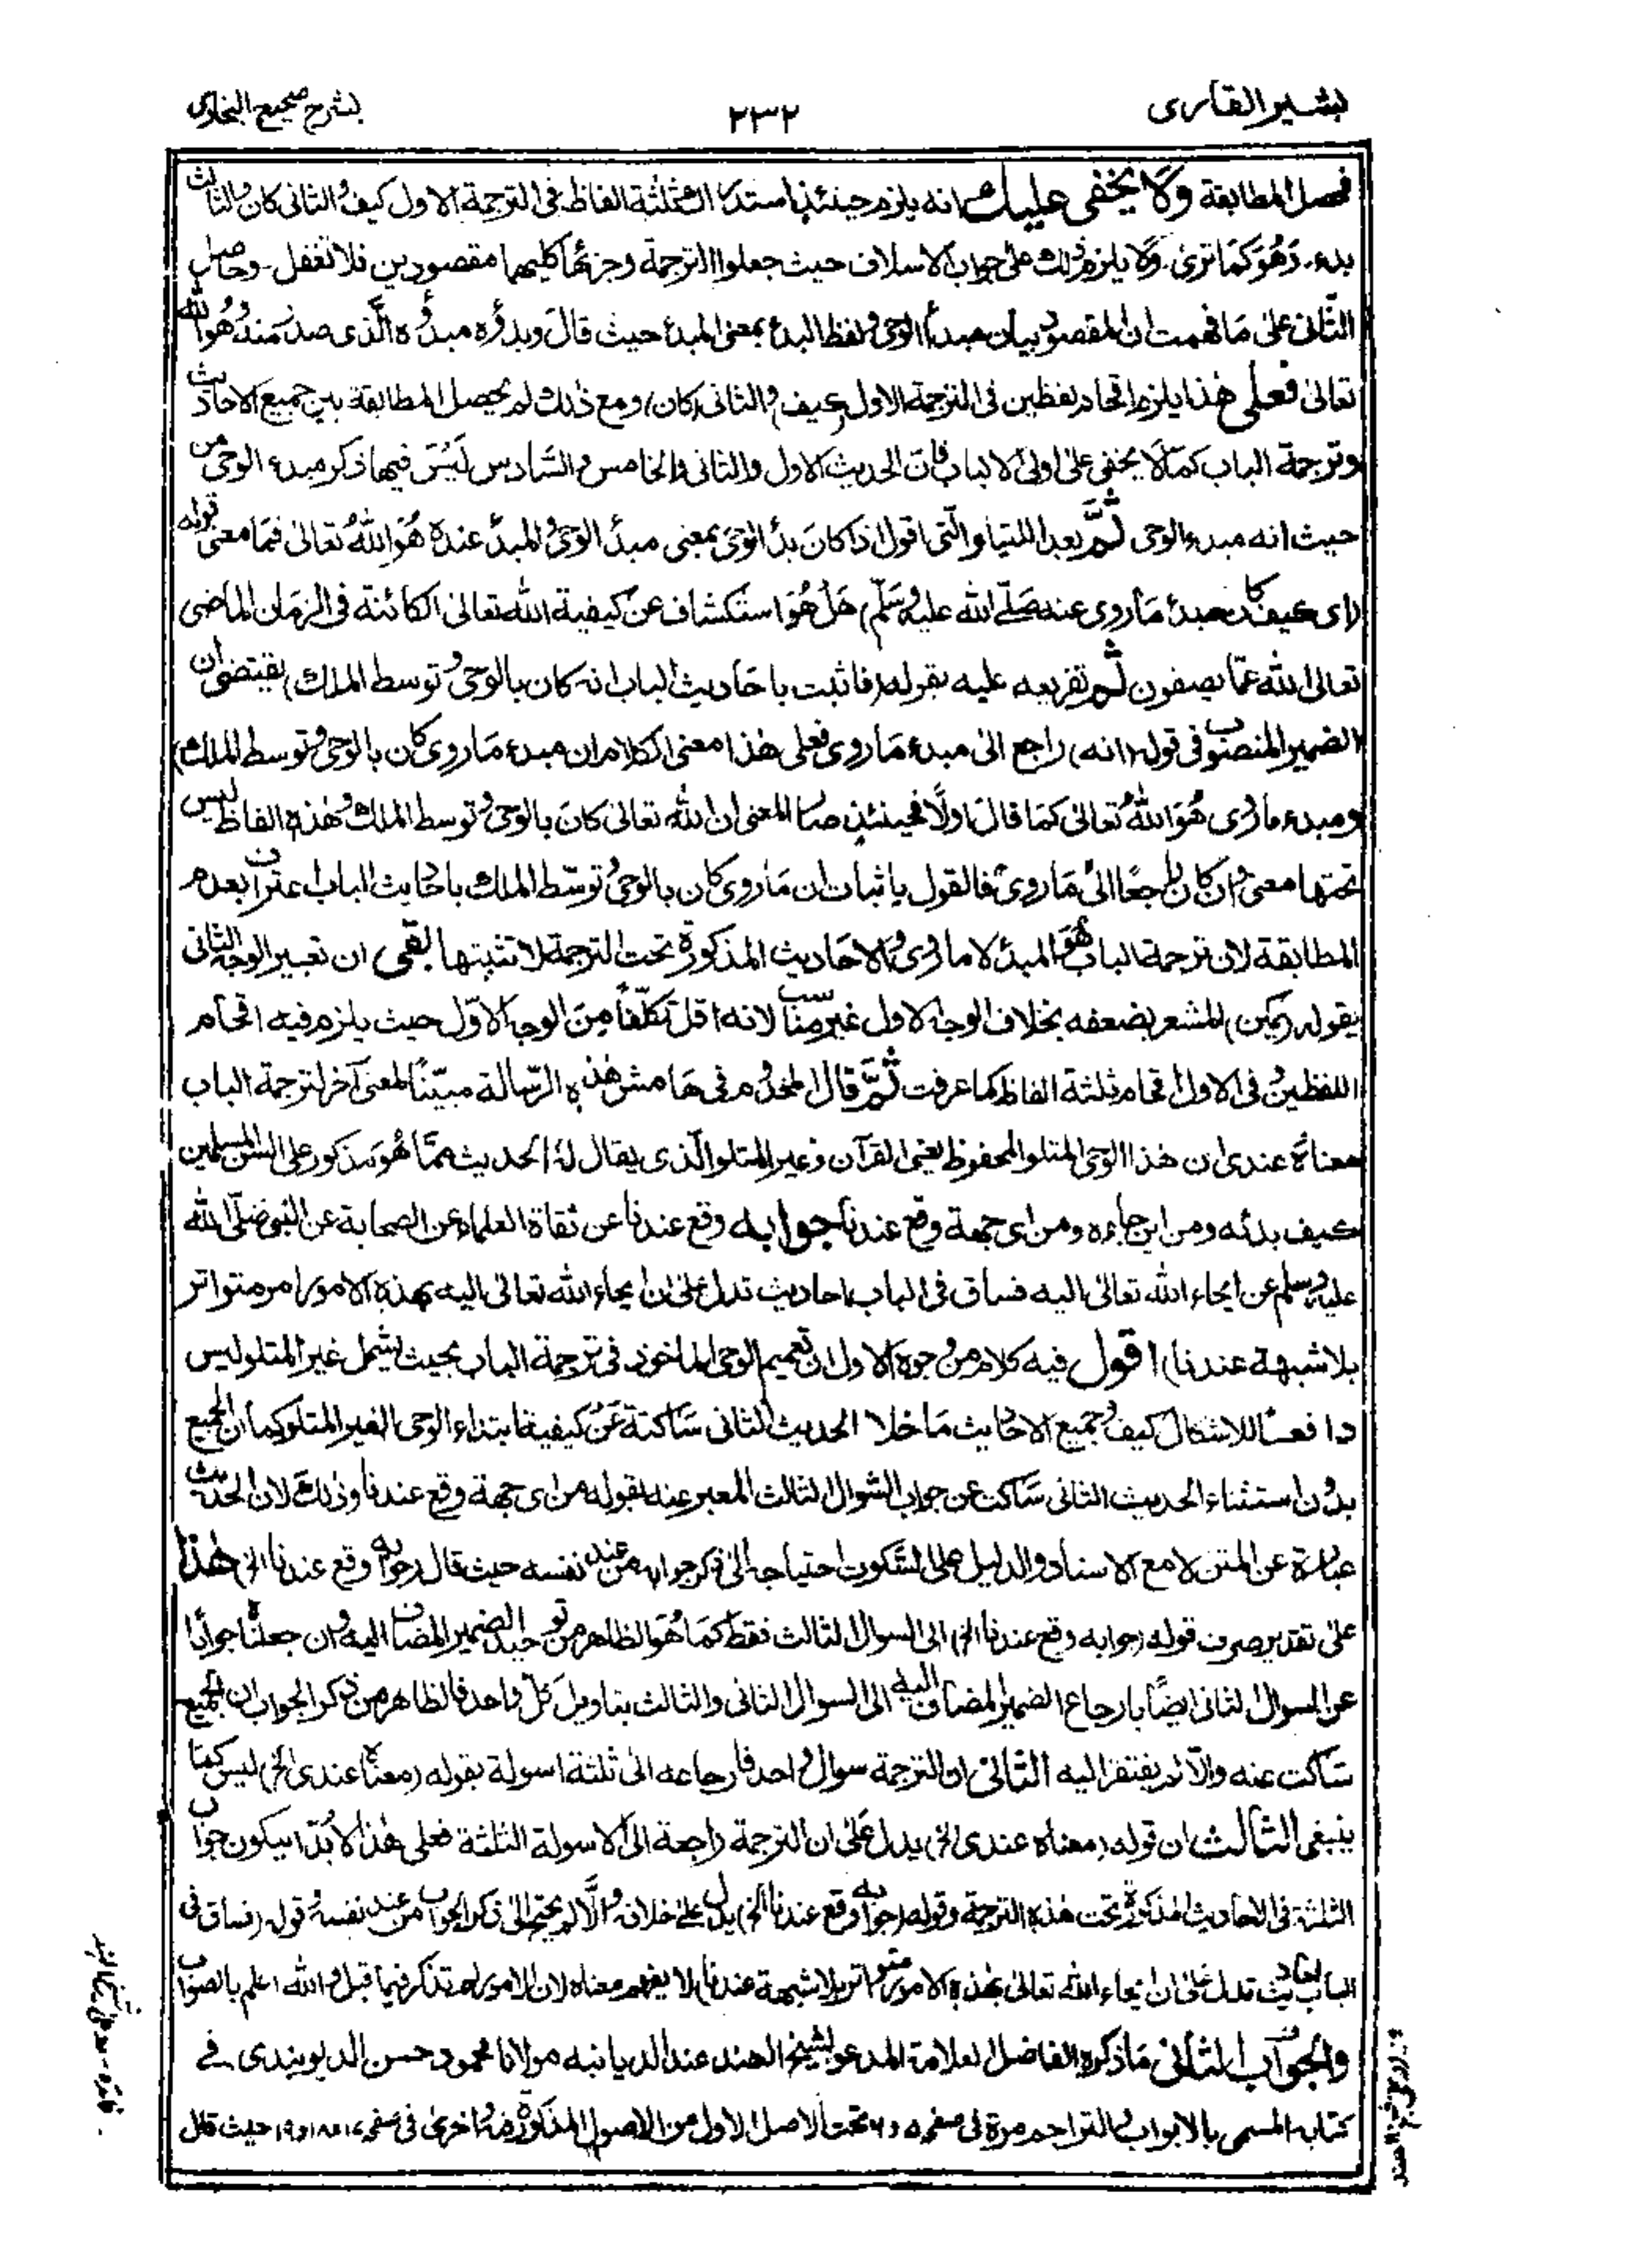 بشير القارى
٢٣٢
بشرح صحيح البخارى
فحصل المطابقة ولا يخفى عليك انه يلزم حينئذ استدراك ثلثة الفاظ فى الترجمة الاول كيف والثانى كان والثالث
بدء. وهو كما ترى. ولا يلزم ذلك على جواب الاسلاف حيث جعلوا الترجمة وجزئها كليهما مقصودين فلا تغفل. وحاصل
الثانى على ما فهمت ان المقصود بيان مبدأ الوحى ولفظ البدأ بمعنى المبدأ حيث قال وبدؤه مبدؤه الذى صدر منه وهو الله
تعالى فعلى هذا يلزم اقحام لفظين فى الترجمة الاول (كيف) والثانى (كان) ومع ذلك لم يحصل المطابقة بين جميع الاحاديث
وترجمة الباب كما لا يخفى على اولى الالباب فان الحديث الاول والثانى والخامس والسادس ليس فيها ذكر مبدء الوحى من
حيث انه مبدء الوحى ثم بعد اللتيا والتى اقول اذا كان بدأ الوحى بمعنى مبدأ الوحى والمبدأ عنده هو الله تعالى فما معنى قوله
(اى كيف كان مبدأ ما روى عنه صلى الله عليه وسلم) هل هو استكشاف عن كيفية الله تعالى الكائنة فى الزمان الماضى
تعالى الله عما يصفون ثم تفريعه عليه بقوله (فاثبت باحاديث الباب انه كان بالوحى وتوسط الملك) يقتضى ان
الضمير المنصوب فى قوله (انه) راجع الى مبدء ما روى فعلى هذا معنى الكلام ان مبدء ما روى كان بالوحى وتوسط الملك)
ومبدء ما روى هو الله تعالى كما قال اولا فحينئذ صار المعنى ان الله تعالى كان بالوحى وتوسط الملك وهذه الفاظ ليس
تحتها معنى وان كان راجعا الى ما روى فالقول باثبات ان ما روى كان بالوحى وتوسط الملك باحاديث الباب اعتراف بعدم
المطابقة لان ترجمة الباب هو المبدأ لا ما روى والاحاديث المذكورة تحت الترجمة لا تثبتها بقى ان تعبير الوجه الثانى
بقوله (يمكن) المشعر بضعفه بخلاف الوجه الاول غير مناسب لانه اقل تكلفا من الوجه الاول حيث يلزم فيه اقحام
اللفظين وفى الاول اقحام ثلثة الفاظ كما عرفت ثم قال المخدوم فى هامش هذه الرسالة مبينا لمعنى آخر لترجمة الباب
معناه عندى ان هذا الوحى المتلو المحفوظ يعنى القرآن وغير المتلو الذى يقال له الحديث مما هو مذكور على السن المسلمين
كيف بدئه ومن اين جاءه ومن اى جهة وقع عندنا جوابه وقع عندنا عن ثقاة العلماء عن الصحابة عن النبى صلى الله
عليه وسلم عن ايحاء الله تعالى اليه فساق فى الباب احاديث تدل على ان ايحاء الله تعالى اليه بهذه الامور امر متواتر
بلا شبهة عندنا) اقول فيه كلام من وجوه الاول ان تعميم الوحى الماخوذ فى ترجمة الباب بحيث يشمل غير المتلو ليس
دافعا للاشكال كيف وجميع الاحاديث ما خلا الحديث الثانى ساكتة عن كيفية ابتداء الوحى الغير المتلو كما ان الجميع
بدون استثناء الحديث الثانى ساكت عن جواب السوال الثالث المعبر عنه بقوله من اى جهة وقع عندنا وذلك لان الحديث
عبارة عن المتن لا مع الاسناد والدليل على السكوت احتياجه الى ذكر جوابه من عند نفسه حيث قال (جوابه وقع عندنا الخ) هذا
على تقدير صرف قوله (جوابه وقع عندنا الخ) الى السوال الثالث فقط كما هو الظاهر من توحيد الضمير المضاف اليه وان جعلناه جوابا
عن السوال الثانى ايضا بارجاع الضمير المضاف اليه الى السوال الثانى والثالث بتاويل كل واحد فالظاهر من ذكر الجواب ان الجميع
ساكت عنه والا لم يفتقر اليه الثانى ان الترجمة سوال واحد فارجاعه الى ثلثة اسولة بقوله (معناه عندى الخ) ليس كما
ينبغى الثالث ان قوله (معناه عندى الخ) يدل على ان الترجمة راجعة الى الاسولة الثلثة فعلى هذا لابد ان يكون جواب
الثلثة فى الاحاديث المذكورة تحت هذه الترجمة وقوله (جوابه وقع عندنا الخ) يدل على خلافه والا لم يحتج الى ذكر الجواب من عند نفسه وقوله (فساق فى
الباب احاديث تدل على ان ايحاء الله تعالى بهذه الامور متواتر بلا شبهة عندنا) لا يفهم معناه لان الامور لم تذكر فيما قبل والله اعلم بالصواب
والجواب الثانى ما ذكره الفاضل العلامة المدعو بشيخ الهند عند الديابنه مولانا محمود حسن الديوبندى فى
كتابه المسمى بالابواب والتراجم مرة فى صفحه ٥ و ٦ تحت الاصل الاول من الاصول المذكورة فيه واخرى فى صفحه ١٧، ١٨ و ١٩ حيث قال